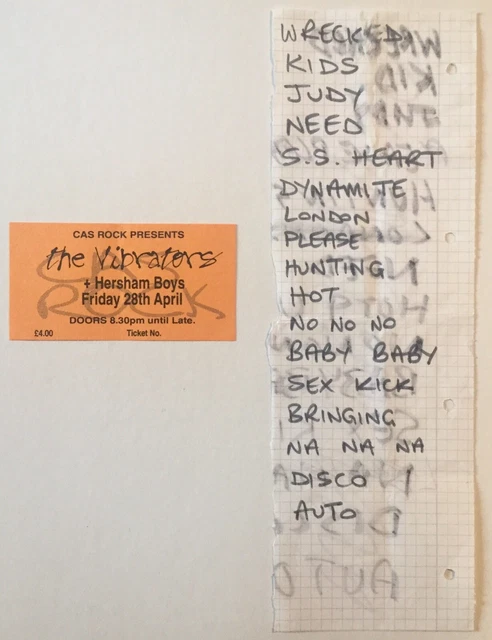 CAS ROCK PRESENTS
the Vibrators
+ Hersham Boys
Friday 28th April
DOORS 8.30pm until Late.
£4.00 Ticket No.
CAS
ROCK
WRECKED
KIDS
JUDY
NEED
S.S. HEART
DYNAMITE
LONDON
PLEASE
HUNTING
HOT
NO NO NO
BABY BABY
SEX KICK
BRINGING
NA NA NA
DISCO
AUTO